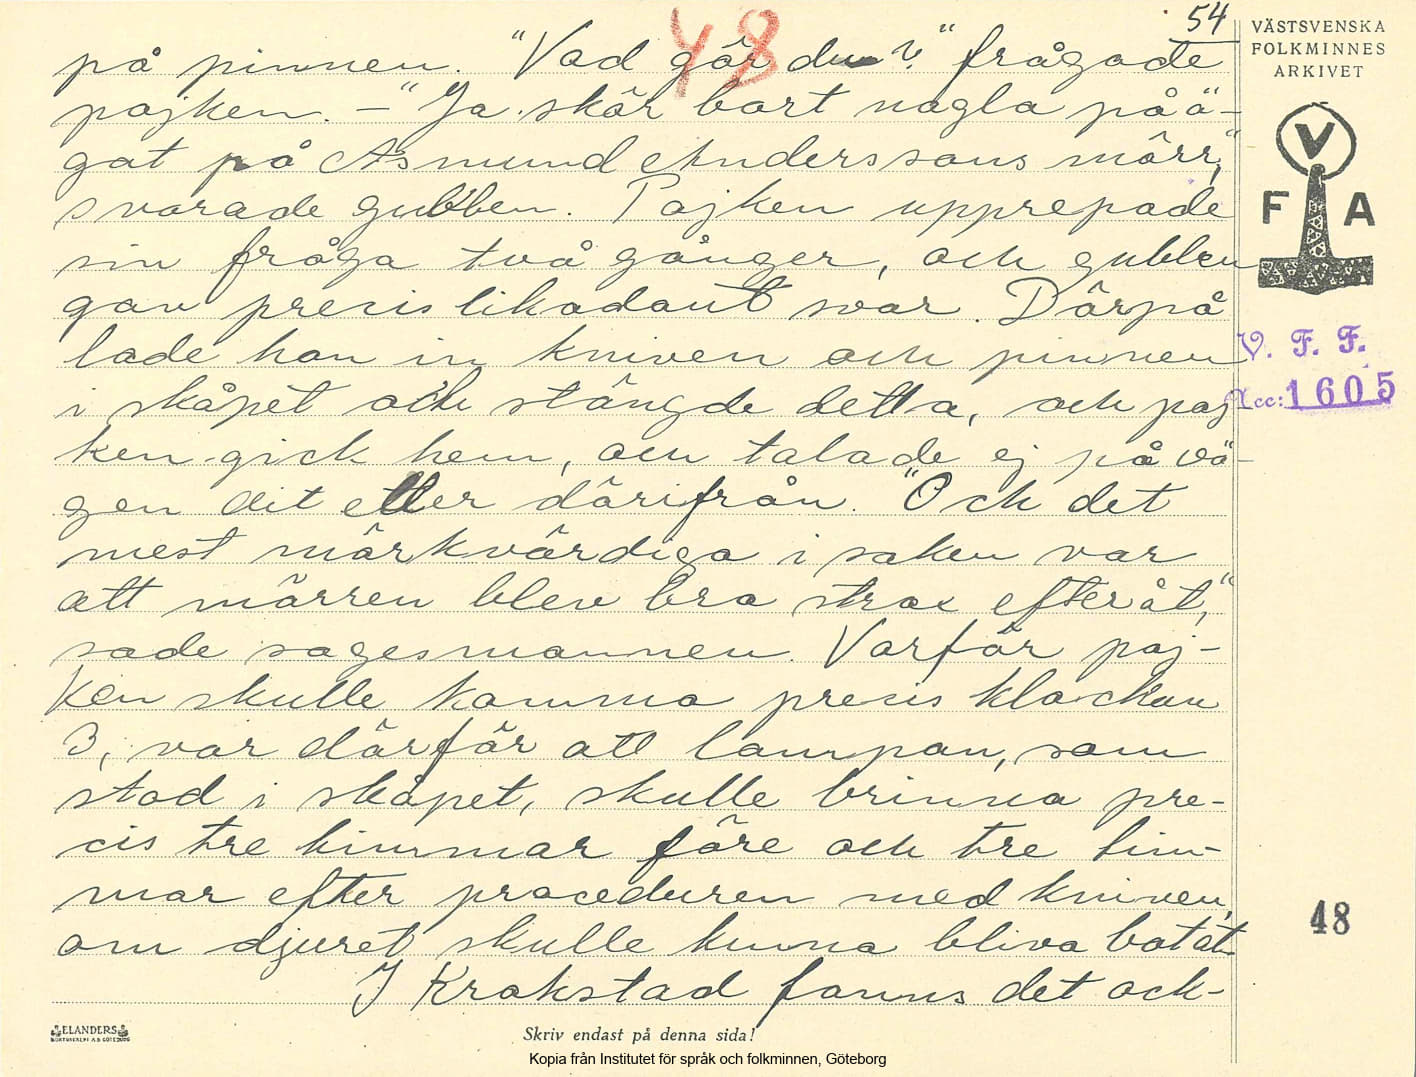 54
48
VÄSTSVENSKA
FOLKMINNES
ARKIVET
V
F A
V. F. F.
Acc: 1605
på pinnen. "Vad gör du?" frågade
pojken. – "Ja skär bort nagla på ö-
gat på Asmund Anderssons märr,"
svarade gubben. Pojken upprepade
sin fråga två gånger, och gubben
gav precis likadant svar. Därpå
lade han in kniven och pinnen
i skåpet och stängde detta, och poj
ken gick hem, om talade ej på vä-
gen dit eller därifrån. "Och det
mest märkvärdiga i saken var
att märren blev bra strax efteråt,"
sade sagesmannen. Varför poj-
ken skulle komma precis klockan
3, var därför att lampan, som
stod i skåpet, skulle brinna pre-
cis tre timmar före och tre tim-
mar efter proceduren med kniven,
om djuret skulle kunna bliva botat.
I Krokstad fanns det ock-
48
ELANDERS
Skriv endast på denna sida!
Kopia från Institutet för språk och folkminnen, Göteborg